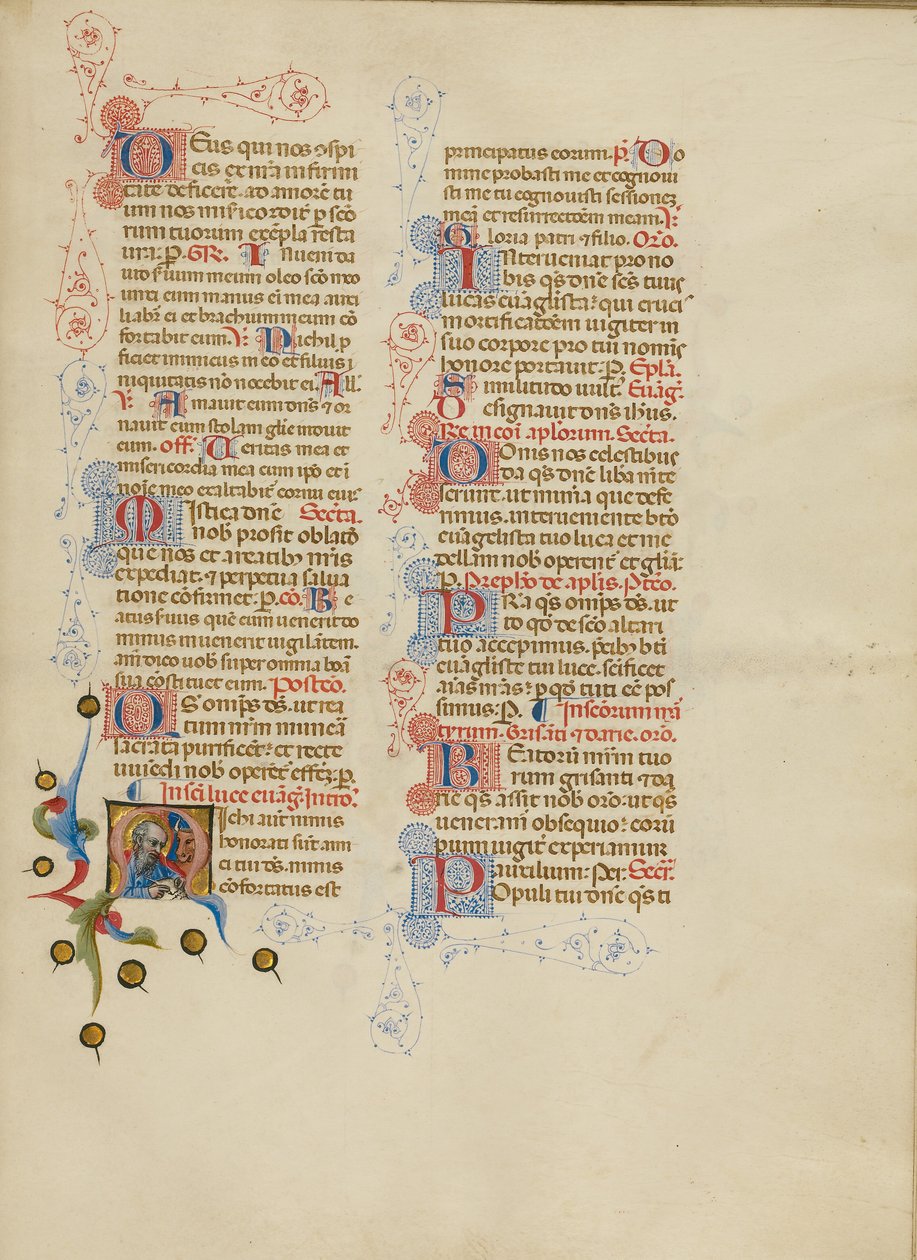 Deus qui nos ɔspi
cis ex nr̄a infirmi
tate deficere. ad amorē tu
um nos mis̄icordit̄ p scō
rum tuorum exēpla resta
ura: P. GR. Inueni da
uid s̄uum meum oleo scō meo
unxi eum manus ei mea auxi
liabr̄ ei et brachium meum cō
fortabit eum. ℣: Nichil p
ficiet inimicus in eo et filius i
niquitatis nō nocebit ei. Alł.
℣: Amauit eum dn̄s ⁊ or
nauit eum stolam glīe induit
eum. off. Ueritas mea et
misericordia mea cum ipō et ī
noīe meo exaltabit̄ cornu eius
Mistica dn̄e Sectā.
nob̄ prosit oblatō
que nos et a reatibȝ nr̄is
expediat. ⁊ perpetua salua
tione cōfirmet: P. cō. Be
atus s̄uus quē cum uenerit do
minus inuenerit uigilātem.
am̄ dico uob̄ super omnia bōa
sua cōstituet eum. Postcō.
QS omīps ds̄. ut rea
tum nr̄m munera
sacrata purificēt: et recte
uiuēdi nob̄ operēt̄ effēȝ: P.
¶ In scī luce euāḡ. Intro.
Michi aut̄ nimis
honorati sūt ami
ci tui ds̄. nimis
cōfortatus est
principatus eorum. p̄. Do
mine probasti me et cognoui
sti me tu cognouisti sessionez
meā et resurrectōem meam. ℣:
Gloria patri ⁊ filio. Orō.
Interueniat pro no
bis qs̄ dn̄e scs̄ tuus
lucas euāglista: qui cruci
mortificatōem iugiter in
suo corpore pro tui nomīs
honore portauit: P. Epl̄a.
Similitudo uult̄. Euāḡ.
Designauit dn̄s ihūs.
Re in coī aplōrum. Sectā.
Donis nos celestibus
da qs̄ dn̄e libā mēte
seruire. ut munera que defe
rimus. interueniente btō
euāgelista tuo luca et me
dellam nob̄ operent̄ et glīaȝ:
P. Prephō de aplīs. Ptcō.
Pr̄a qs̄ omīps ds̄. ut
id qd̄ de scō altari
tuo accepimus. p̄cibȝ bt̄i
euāgliste tui luce. scīficet
aīas nr̄as: p qd̄ tuti eē pos
simus: P. ¶ In scōrum mr̄
tyrum. Grisāti ⁊ darie. orō.
Beatorū mr̄m tuo
rum grisanti ⁊ da
rie qs̄ assit nob̄ orō: ut qs̄
ueneram̄ obsequio: eorū
pium iugit̄ experiamur
auxilium: Per: Secr̄.
Populi tui dn̄e qs̄ ti